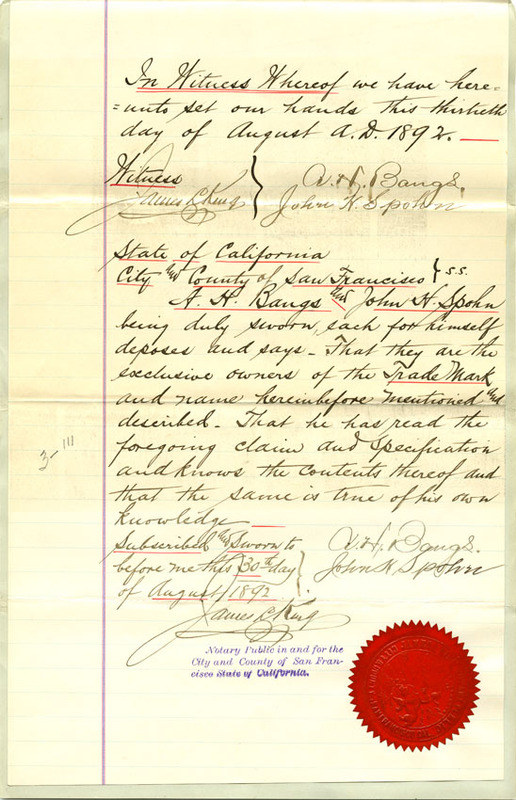 In Witness Whereof we have here=
=unto set our hands this thirtieth
day of August A.D. 1892.
Witness
James L. King } A. H. Bangs.
John H. Spohn
State of California
City and County of San Francisco } S.S.
A. H. Bangs and John H. Spohn
being duly sworn, each for himself
deposes and says - That they are the
exclusive owners of the Trade Mark
and name hereinbefore mentioned and
described - That he has read the
3-111
foregoing claim and Specification
and knows the contents thereof and
that the same is true of his own
knowledge
Subscribed and Sworn to
before me this 30th day
of August 1892 }
A. H. Bangs.
John H. Spohn
James L. King
Notary Public in and for the
City and County of San Fran-
cisco State of California.